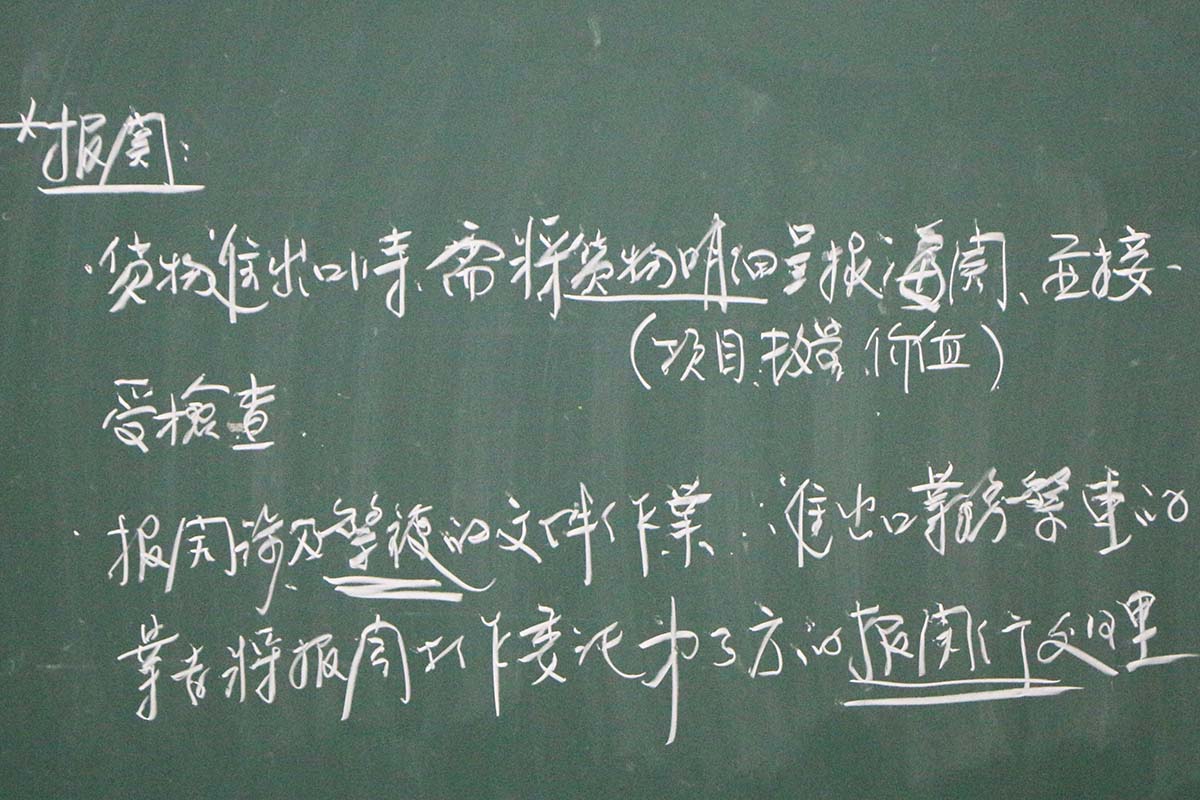 *報關:
·貨物進出口時,需將貨物明細呈報海關、並接
(項目、數量、價值)
受檢查
·報關涉及繁複的文件作業,進出口業務繁重的
業者將報關工作委託第三方的報關行處理